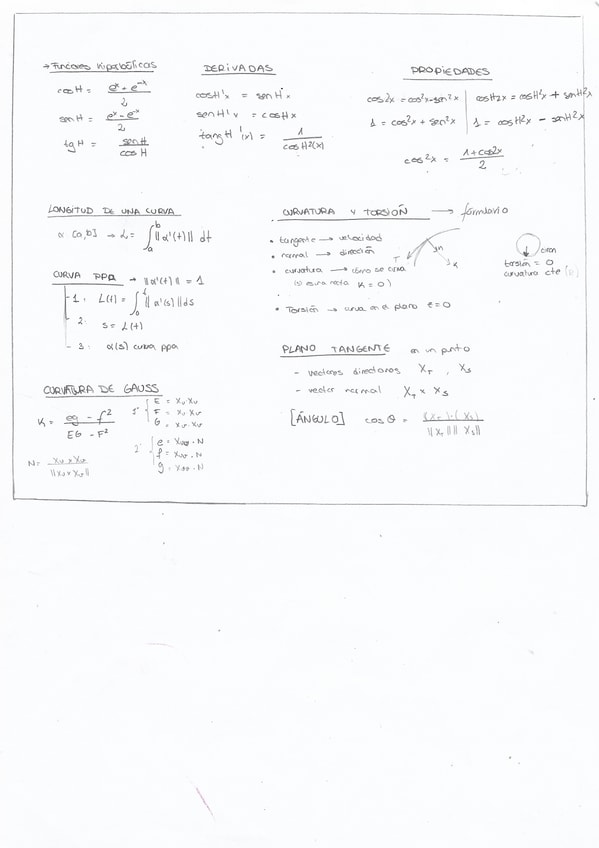 → Funciones Hiperbólicas
cosH = e^x + e^-x / 2
senH = e^x - e^-x / 2
tgH = senH / cosH
DERIVADAS
cosH'x = senHx
senH'x = cosHx
tangH'(x) = 1 / cosH²(x)
PROPIEDADES
cos2x = cos²x - sen²x | cosH2x = cosH²x + senH²x
1 = cos²x + sen²x | 1 = cosH²x - senH²x
cos²x = 1 + cos2x / 2
LONGITUD DE UNA CURVA
α [a,b] → L = ∫_a^b ||α'(t)|| dt
CURVA PPA → ||α'(t)|| = 1
1: L(t) = ∫_0^t ||α'(s)|| ds
2: s = L(t)
3: α(s) curva ppa
CURVATURA Y TORSIÓN → formulario
• tangente → velocidad
• normal → dirección
• curvatura → cómo se curva
(si es una recta K = 0)
• Torsión → curva en el plano τ = 0
T
n
K
torsión = 0
curvatura cte
PLANO TANGENTE en un punto
- vectores directores X_T, X_S
- vector normal X_T × X_S
[ÁNGULO] cos θ = (X_T)·(X_S) / ||X_T|| ||X_S||
CURVATURA DE GAUSS
K = eg - f² / EG - F²
1° { E = Xu Xu
F = Xu Xv
G = Xv Xv
2° { e = Xuu · N
f = Xuv · N
g = Xvv · N
N = Xu × Xv / ||Xu × Xv||